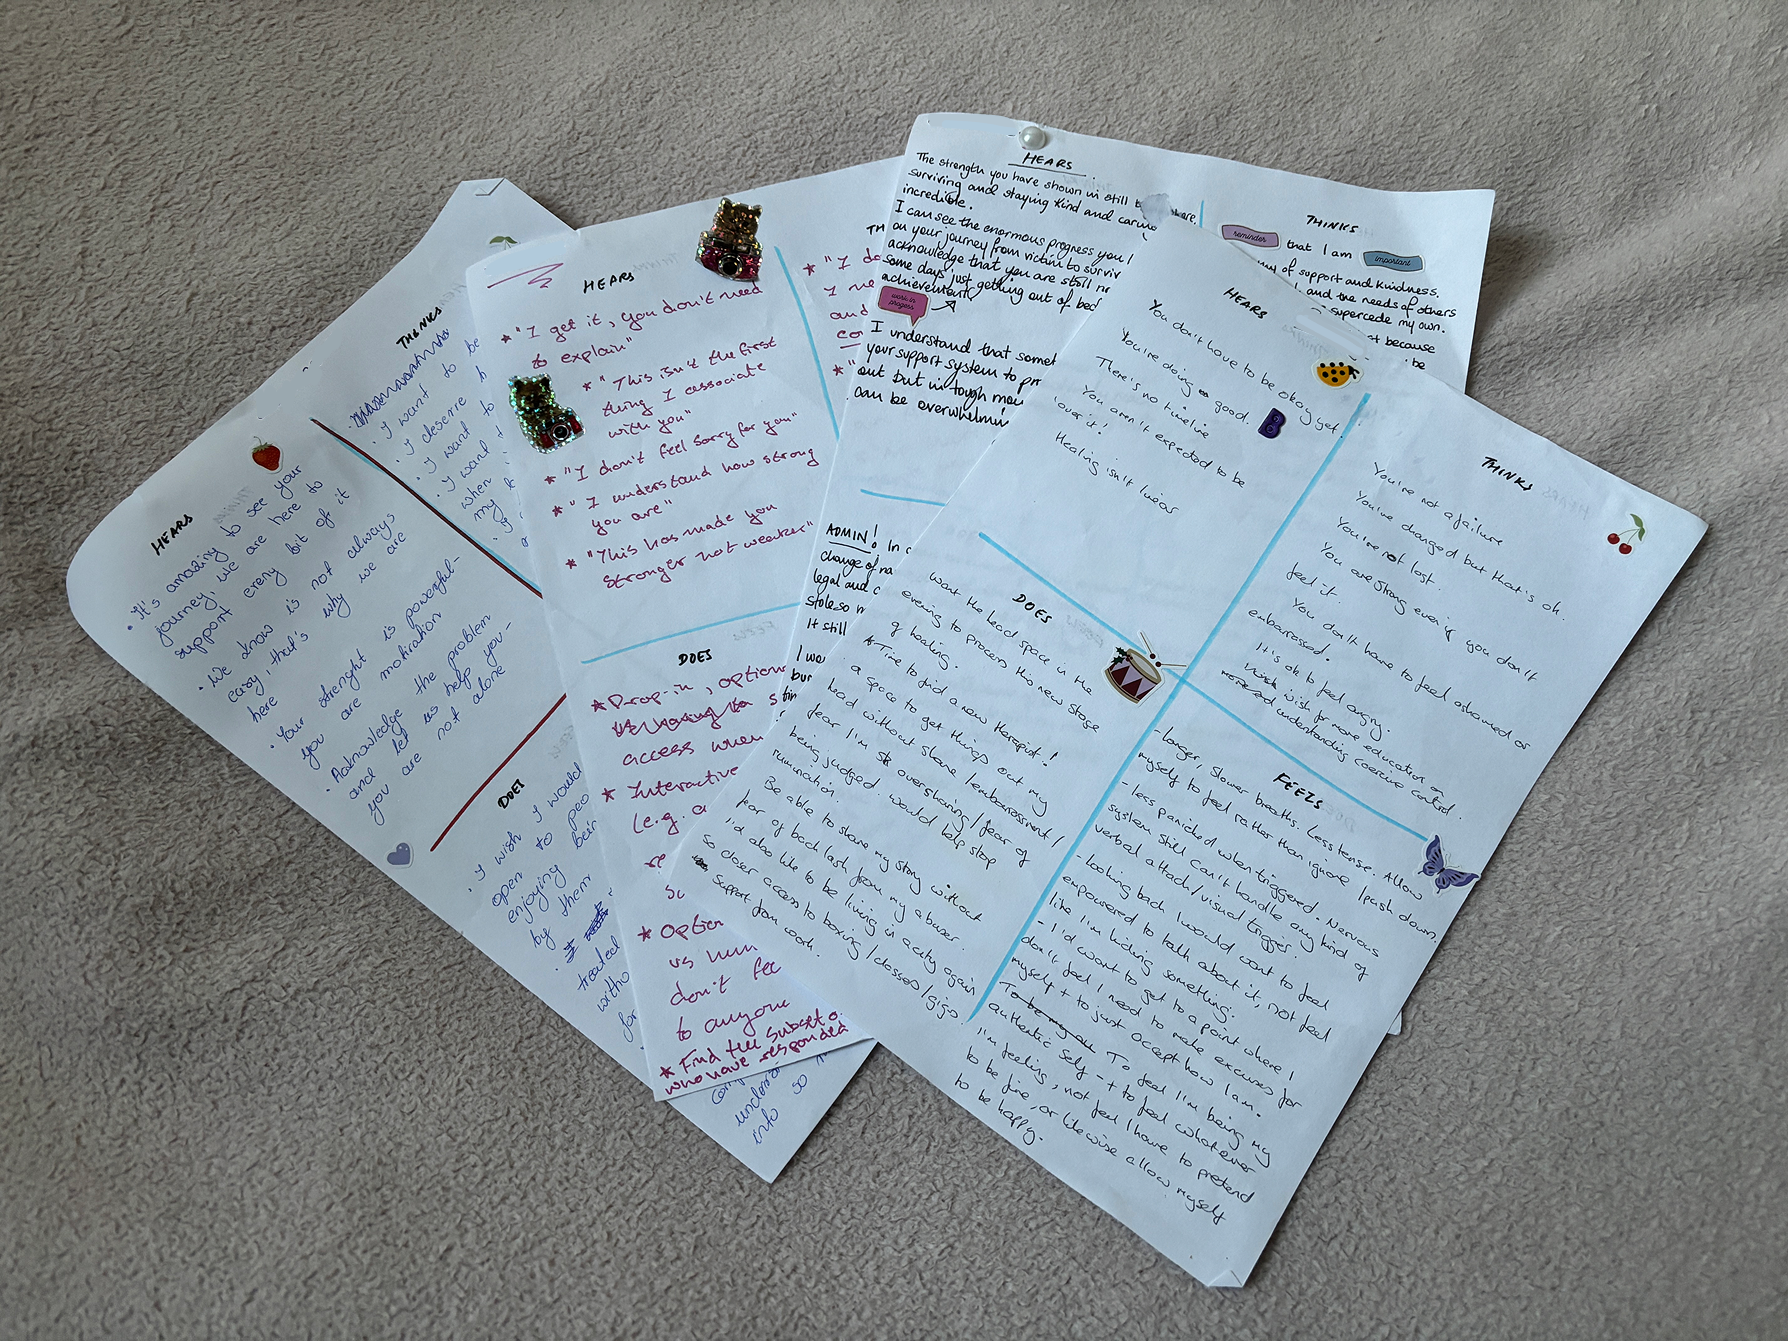 HEARS
• It's amazing to see your
journey, we are here to
support every bit of it
• We know is not always
easy, that's why we are
here
• Your strenght is powerful -
you are motivation
• Acknowledge the problem
and let us help you -
you are not alone
THINKS
• I want to be
• I deserve
• I want to
• I want
when
my
• I
DOES
• I wish I would
open to peo
enjoying bein
by them
• I
treated
witho
for
understa
into so
HEARS
* "I get it, you don't need
to explain"
* "This isn't the first
thing I associate
with you"
* "I don't feel sorry for you"
* "I understand how strong
you are"
* "This has made you
stronger not weaker"
TH
* "I do
I ne
and
co
* "
DOES
* Drop-in, option
access when
* Interactive
(e.g. a
* Option
vs
don't fee
to anyone
* Find the subset o
who have responded
HEARS
The strength you have shown in still
surviving and staying kind and caring
incredible.
I can see the enormous progress you
on your journey from victim to surviv
acknowledge that you are still
some days just getting out of bed
achievement
work in
progress
I understand that somet
your support system to pr
out but in tough mo
can be overwhelmin
THINKS
reminder that I am important
of support and kindness.
and the needs of others
supercede my own.
because
be
ADMIN! In
change of na
legal and
stole so m
It still
I wo
bur
tin
HEARS
You don't have to be okay yet.
You're doing good.
There's no timeline
You aren't expected to be
'over it'!
Healing isn't linear
B
THINKS
You're not a failure
You've changed but that's ok.
You're not lost.
You are strong even if you don't
feel it.
You don't have to feel ashamed or
embarassed.
It's ok to feel angry.
I wish for more education on
understanding coercive control.
DOES
want the head space in the
evening to process this new stage
of healing.
Time to find a new therapist!
a space to get things out my
head without shame/embarrassment/
fear I'm oversharing/fear of
being judged. would help stop
rumination.
Be able to share my story without
fear of backlash from my abuser.
I'd also like to be living in a city again
so closer access to boxing/classes/gigs.
Support from work.
FEELS
- longer, slower breaths. Less tense. Allow
myself to feel rather than ignore/push down.
- less panicked when triggered. Nervous
system still can't handle any kind of
verbal attack/visual trigger.
- Looking back I would want to feel
empowered to talk about it, not feel
like I'm hiding something.
- I'd want to get to a point where I
don't feel I need to make excuses for
myself + to just accept how I am.
To be my own To feel I'm being my
authentic self - + to feel whatever
I'm feeling, not feel I have to pretend
to be fine, or likewise allow myself
to be happy.